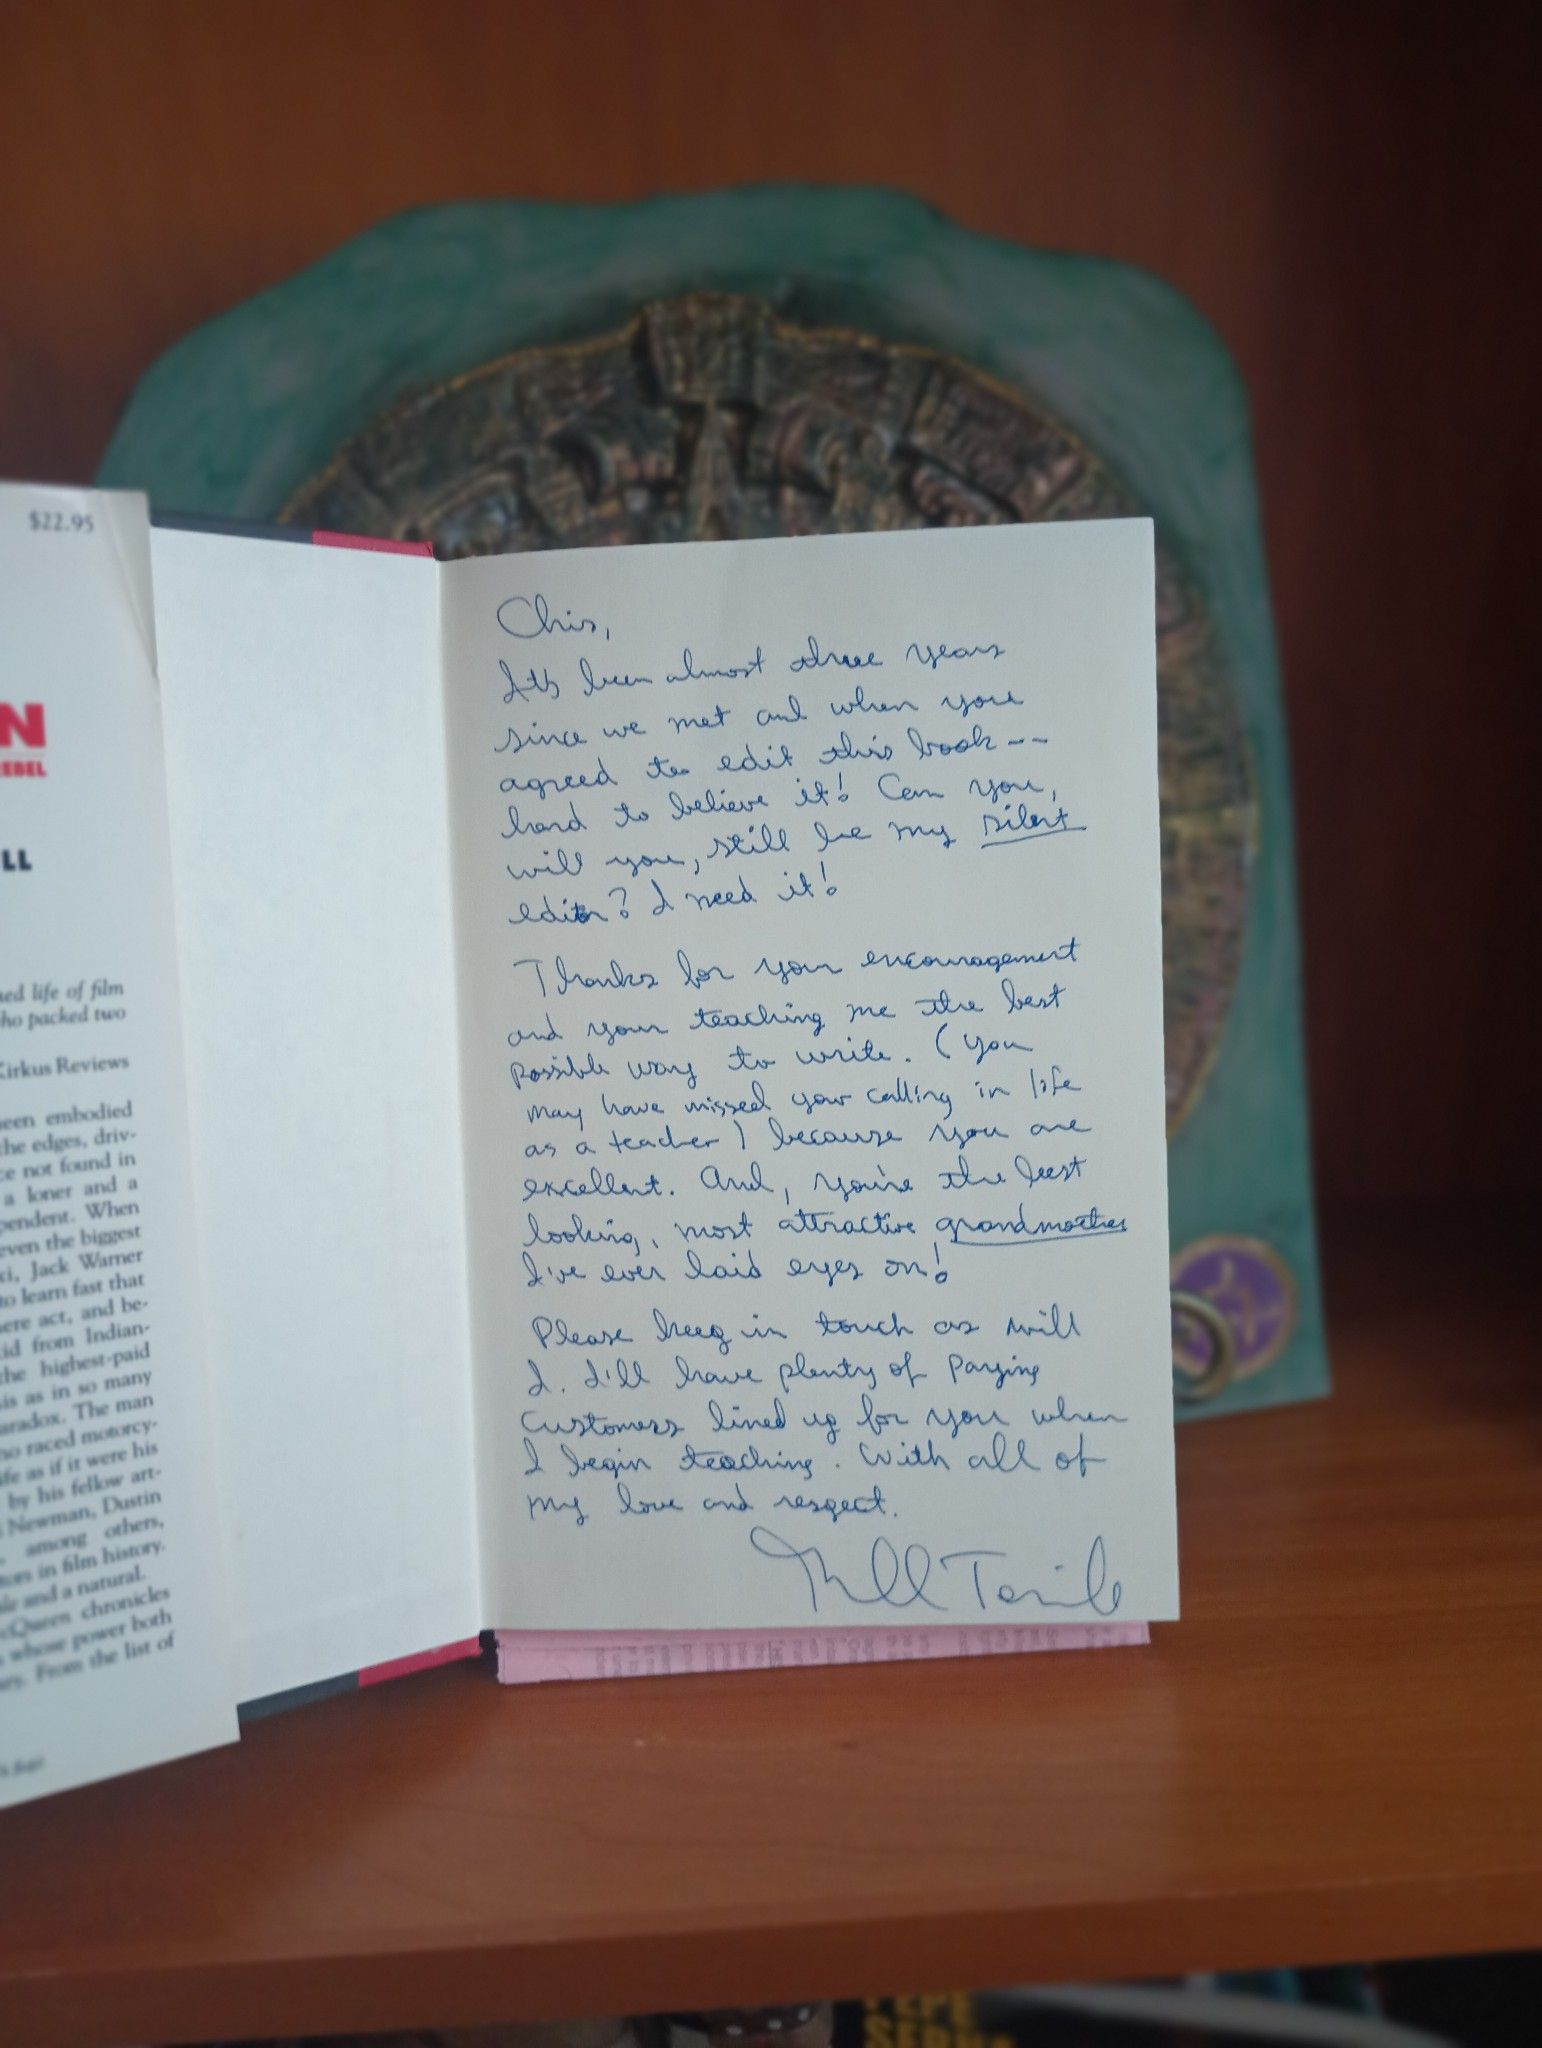 $22.95
N
EBEL
LL
ned life of film
ho packed two
Kirkus Reviews
een embodied
the edges, driv-
ce not found in
a loner and a
pendent. When
even the biggest
Jack Warner
to learn fast that
ere act, and be-
id from Indian-
the highest-paid
is as in so many
aradox. The man
ho raced motorcy-
ife as if it were his
by his fellow art-
Newman, Dustin
among others,
tors in film history.
and a natural.
cQueen chronicles
whose power both
ary. From the list of
flap)
Chris,
It's been almost three years
since we met and when you
agreed to edit this book--
hard to believe it! Can you,
will you, still be my silent
editor? I need it!
Thanks for your encouragement
and your teaching me the best
possible way to write. (You
may have missed your calling in life
as a teacher) because you are
excellent. And, you're the best
looking, most attractive grandmother
I've ever laid eyes on!
Please keep in touch as will
I. I'll have plenty of paying
customers lined up for you when
I begin teaching. With all of
my love and respect.
PEPE